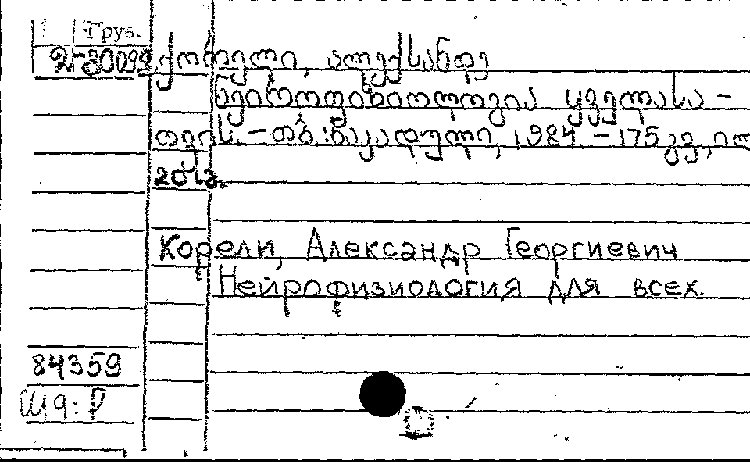 Груз.
ქორელი, ალექსანდრე
ნეიროფიზიოლოგია ყველასა-
თვის. – თბ.: ნაკადული, 1984 – 175 გვ., ილ
20 სმ.
Корели, Александр Георгиевич
Нейрофизиология для всех
84359